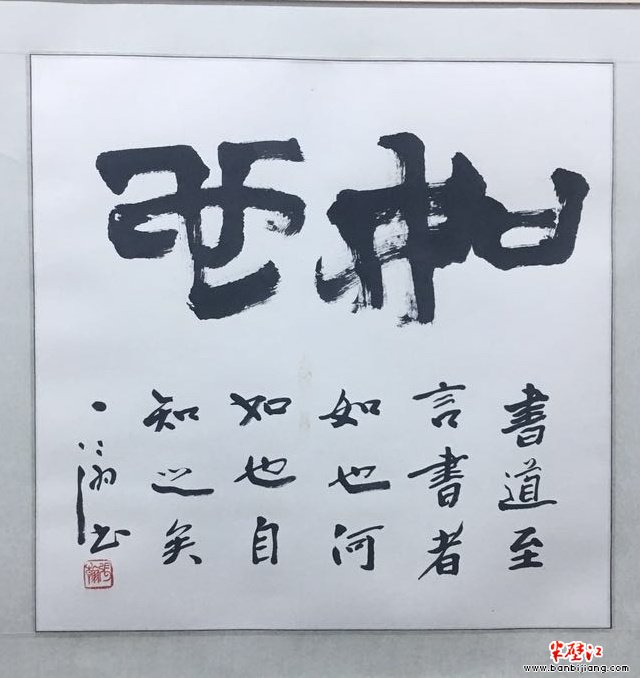 如
書道至
言書者
如也河
如也自
知之矣
一翁书
半壁江
www.banbijiang.com